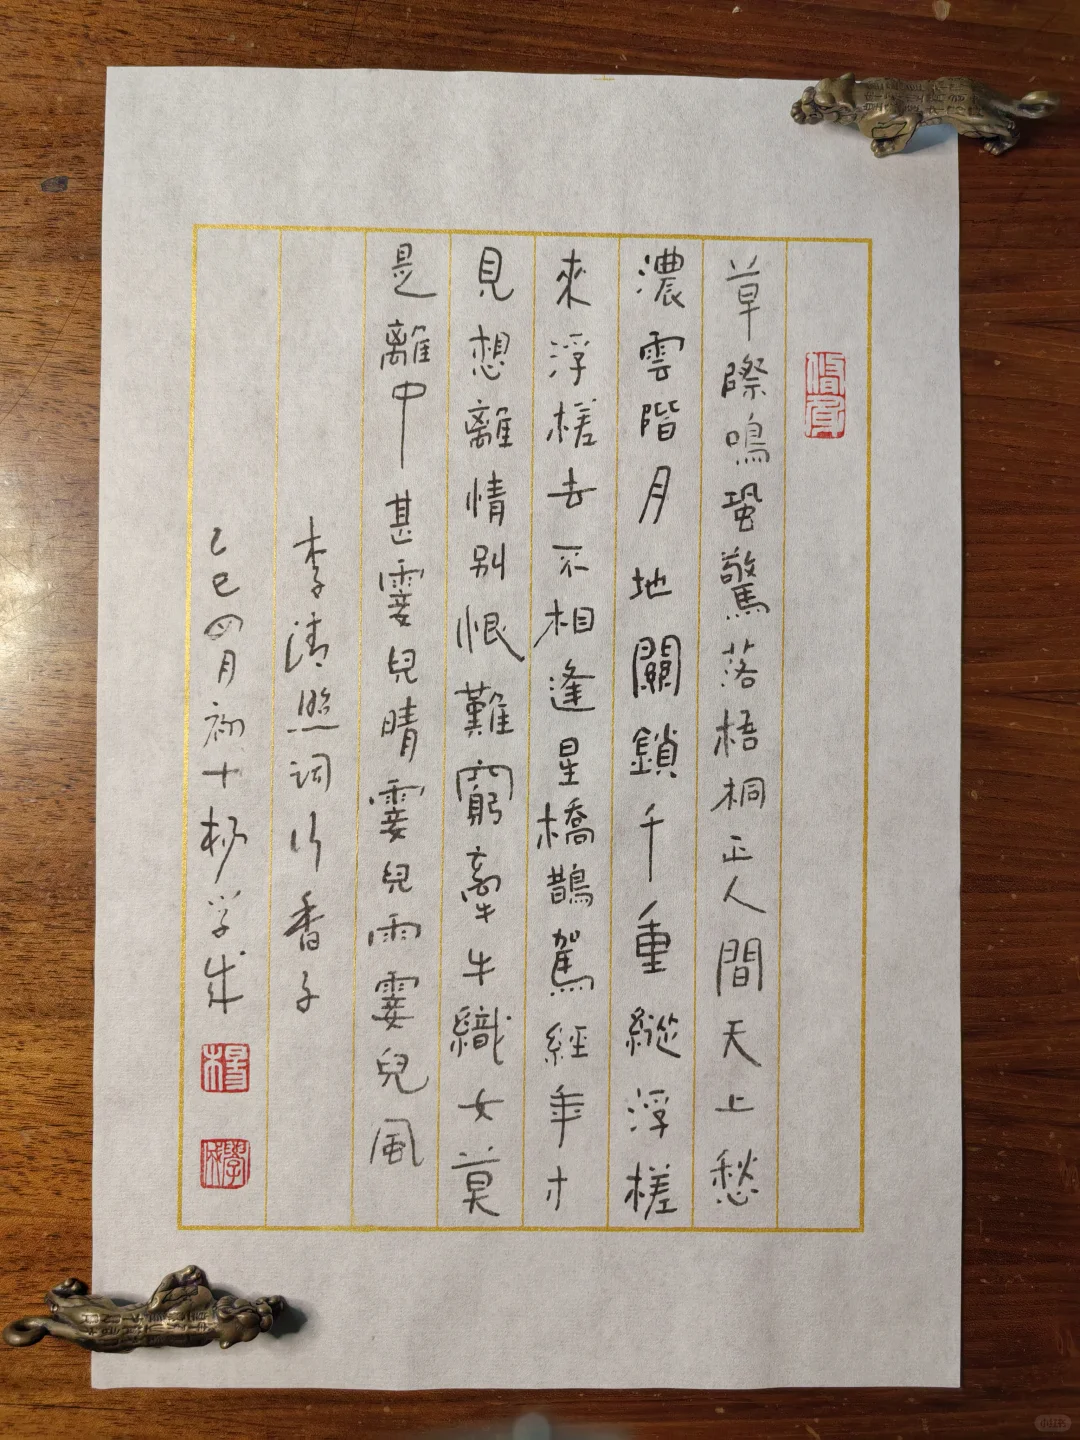 草際鳴蛩驚落梧桐正人間天上愁
濃雲階月地關鎖千重縱浮槎
來浮槎去不相逢星橋鵲駕經年才
見想離情别恨難窮牽牛織女莫
是離中甚霎兒晴霎兒雨霎兒風
李清照詞行香子
乙巳四月初十杨学成
楊
學成